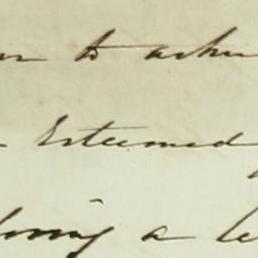 to ackn
Esteemed
losing a le